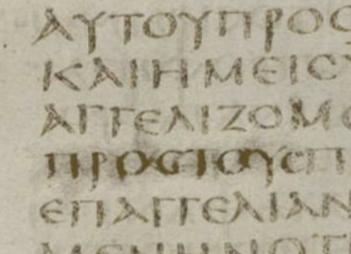 ΑΥΤΟΥΠΡΟϹ
ΚΑΙΗΜΕΙϹΥ
ΑΓΓΕΛΙΖΟΜΕ
ΠΡΟϹΤΟΥϹΠ
ΕΠΑΓΓΕΛΙΑΝ